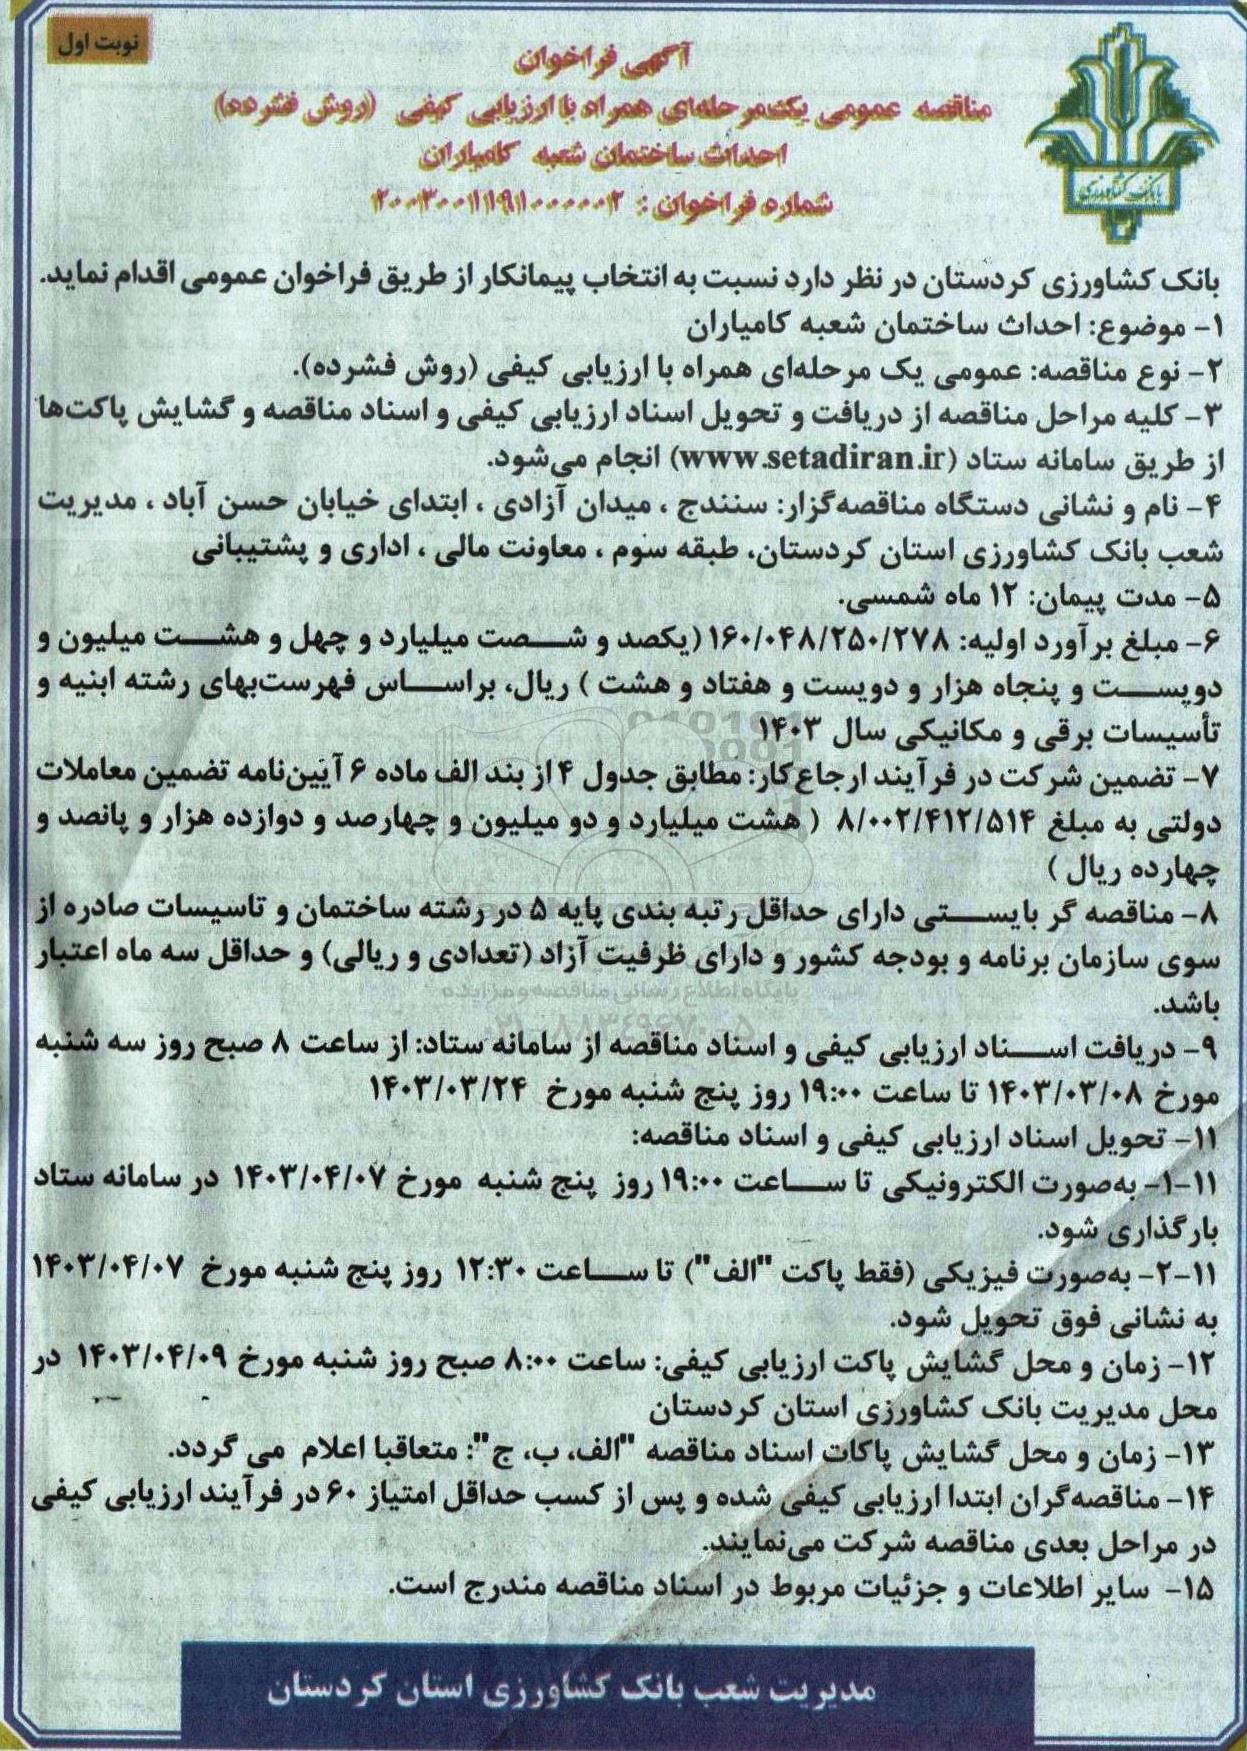 نوبت اول
بانک کشاورزی
آگهی فراخوان
مناقصه عمومی یک‌مرحله‌ای همراه با ارزیابی کیفی (روش فشرده)
احداث ساختمان شعبه کامیاران
شماره فراخوان: ۲۰۰۳۰۰۱۱۹۱۰۰۰۰۰۲
بانک کشاورزی کردستان در نظر دارد نسبت به انتخاب پیمانکار از طریق فراخوان عمومی اقدام نماید.
۱- موضوع: احداث ساختمان شعبه کامیاران
۲- نوع مناقصه: عمومی یک مرحله‌ای همراه با ارزیابی کیفی (روش فشرده).
۳- کلیه مراحل مناقصه از دریافت و تحویل اسناد ارزیابی کیفی و اسناد مناقصه و گشایش پاکت‌ها
از طریق سامانه ستاد (www.setadiran.ir) انجام می‌شود.
۴- نام و نشانی دستگاه مناقصه‌گزار: سنندج ، میدان آزادی ، ابتدای خیابان حسن آباد ، مدیریت
شعب بانک کشاورزی استان کردستان، طبقه سوم ، معاونت مالی ، اداری و پشتیبانی
۵- مدت پیمان: ۱۲ ماه شمسی.
۶- مبلغ برآورد اولیه: ۱۶۰/۰۴۸/۲۵۰/۲۷۸ (یکصد و شصت میلیارد و چهل و هشت میلیون و
دویست و پنجاه هزار و دویست و هفتاد و هشت ) ریال، براساس فهرست‌بهای رشته ابنیه و
تأسیسات برقی و مکانیکی سال ۱۴۰۳
۷- تضمین شرکت در فرآیند ارجاع‌کار: مطابق جدول ۴ از بند الف ماده ۶ آیین‌نامه تضمین معاملات
دولتی به مبلغ ۸/۰۰۲/۴۱۲/۵۱۴ ( هشت میلیارد و دو میلیون و چهارصد و دوازده هزار و پانصد و
چهارده ریال )
۸- مناقصه گر بایستی دارای حداقل رتبه بندی پایه ۵ در رشته ساختمان و تاسیسات صادره از
سوی سازمان برنامه و بودجه کشور و دارای ظرفیت آزاد (تعدادی و ریالی) و حداقل سه ماه اعتبار
پایگاه اطلاع رسانی مناقصه و مزایده
باشد.
۰۲۱-۸۸۳۴۹۶۷۰-۵
۹- دریافت اسناد ارزیابی کیفی و اسناد مناقصه از سامانه ستاد: از ساعت ۸ صبح روز سه شنبه
مورخ ۱۴۰۳/۰۳/۰۸ تا ساعت ۱۹:۰۰ روز پنج شنبه مورخ ۱۴۰۳/۰۳/۲۴
۱۱- تحویل اسناد ارزیابی کیفی و اسناد مناقصه:
۱۱-۱- به‌صورت الکترونیکی تا ساعت ۱۹:۰۰ روز پنج شنبه مورخ ۱۴۰۳/۰۴/۰۷ در سامانه ستاد
بارگذاری شود.
۱۱-۲- به‌صورت فیزیکی (فقط پاکت "الف") تا ساعت ۱۲:۳۰ روز پنج شنبه مورخ ۱۴۰۳/۰۴/۰۷
به نشانی فوق تحویل شود.
۱۲- زمان و محل گشایش پاکت ارزیابی کیفی: ساعت ۸:۰۰ صبح روز شنبه مورخ ۱۴۰۳/۰۴/۰۹ در
محل مدیریت بانک کشاورزی استان کردستان
۱۳- زمان و محل گشایش پاکات اسناد مناقصه "الف، ب، ج": متعاقبا اعلام می گردد.
۱۴- مناقصه‌گران ابتدا ارزیابی کیفی شده و پس از کسب حداقل امتیاز ۶۰ در فرآیند ارزیابی کیفی
در مراحل بعدی مناقصه شرکت می‌نمایند.
۱۵- سایر اطلاعات و جزئیات مربوط در اسناد مناقصه مندرج است.
مدیریت شعب بانک کشاورزی استان کردستان